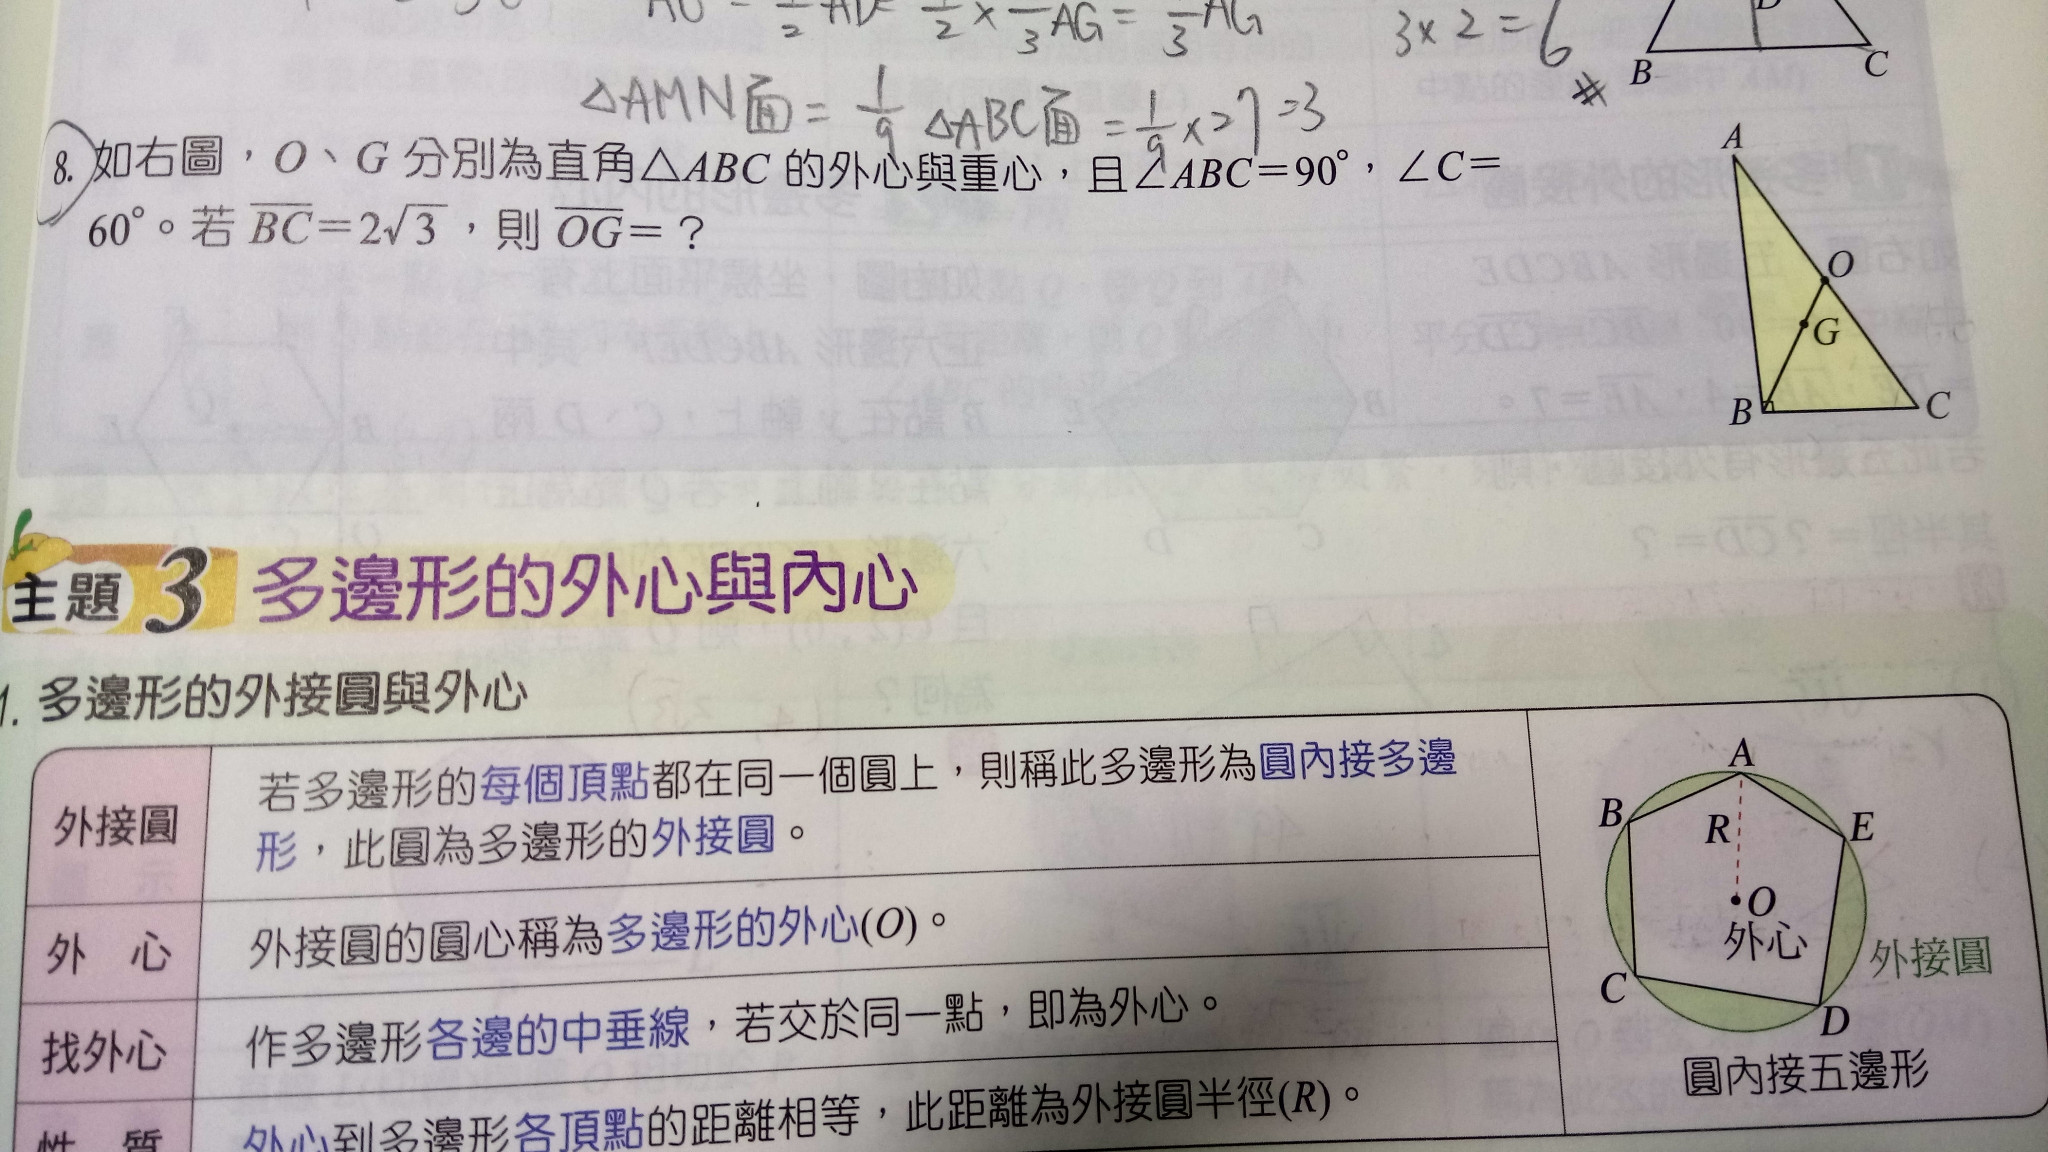 3×2=6
B
C
△AMN面 = 1/9 △ABC面 = 1/9×27=3
8. 如右圖，O、G 分別為直角△ABC 的外心與重心，且∠ABC=90°，∠C=
60°。若 BC=2√3，則 OG=？
A
O
G
B
C
主題3 多邊形的外心與內心
1. 多邊形的外接圓與外心
外接圓
若多邊形的每個頂點都在同一個圓上，則稱此多邊形為圓內接多邊
形，此圓為多邊形的外接圓。
外 心
外接圓的圓心稱為多邊形的外心(O)。
找外心
作多邊形各邊的中垂線，若交於同一點，即為外心。
性 質
外心到多邊形各頂點的距離相等，此距離為外接圓半徑(R)。
A
B
R
E
O
外心
外接圓
C
D
圓內接五邊形